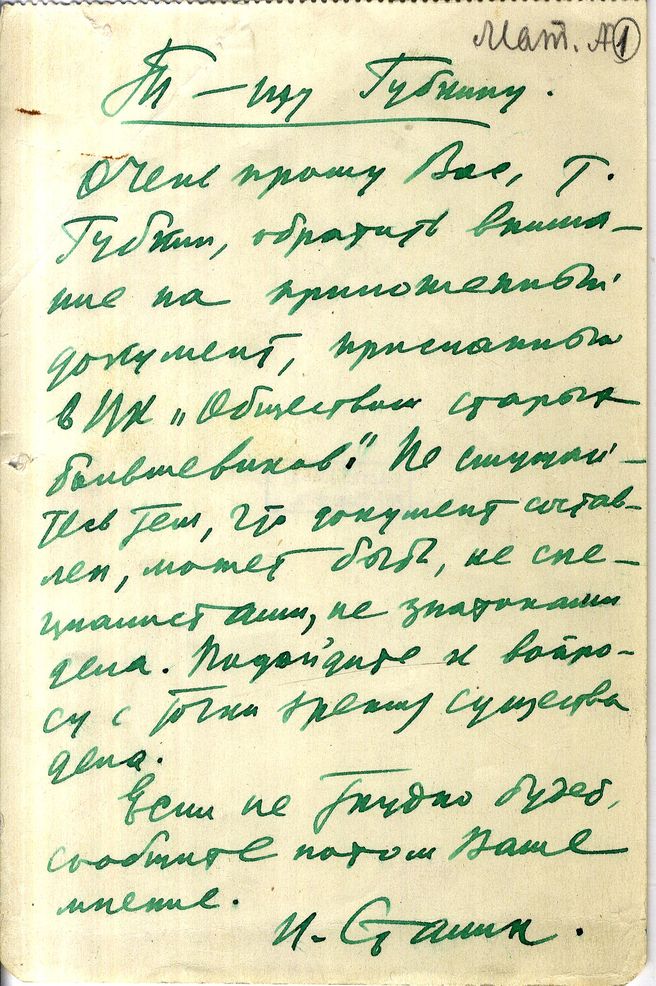 Мат. А 1
Т-щу Губкину.
Очень прошу Вас, т.
Губкин, обратить внима-
ние на приложенный
документ, присланный
в ЦК „Обществом старых
большевиков“. Не смущай-
тесь тем, что документ состав-
лен, может быть, не спе-
циалистами, не знатоками
дела. Подойдите к вопро-
су с точки зрения существа
дела.
Если не трудно будет,
сообщите потом Ваше
мнение.
И. Сталин.